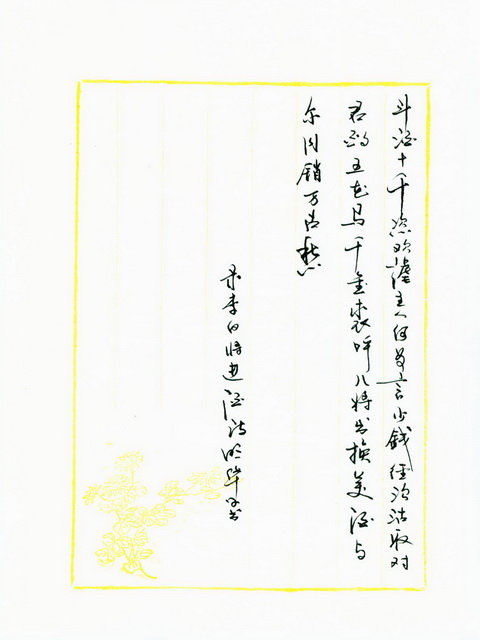 斗酒十千恣欢谑主人何为言少錢径须沽取对
君酌五花马千金裘呼儿将出换美酒与
尔同销万古愁
录李白将进酒诗